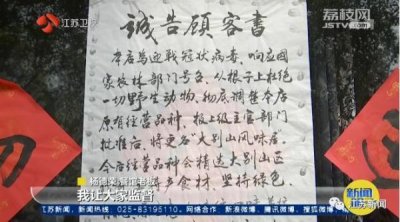 江苏卫视
荔枝网
JSTV.com
诚告顾客書
本店為迎戰冠状病毒、响应国
家农林部门号召,从根子上杜绝
一切野生动物,彻底調整本店
原有经营品种,报上级主管部门
批准后,将更名"大别山风味居"
今后经营品种会精选大别山区
乡食材,坚持绿色
杨德荣 餐馆老板
我让大家监督
新闻
江苏新闻
江苏新闻,新闻热线:025-83195110,网络合作:新浪微博、腾讯微博、搜狐微博